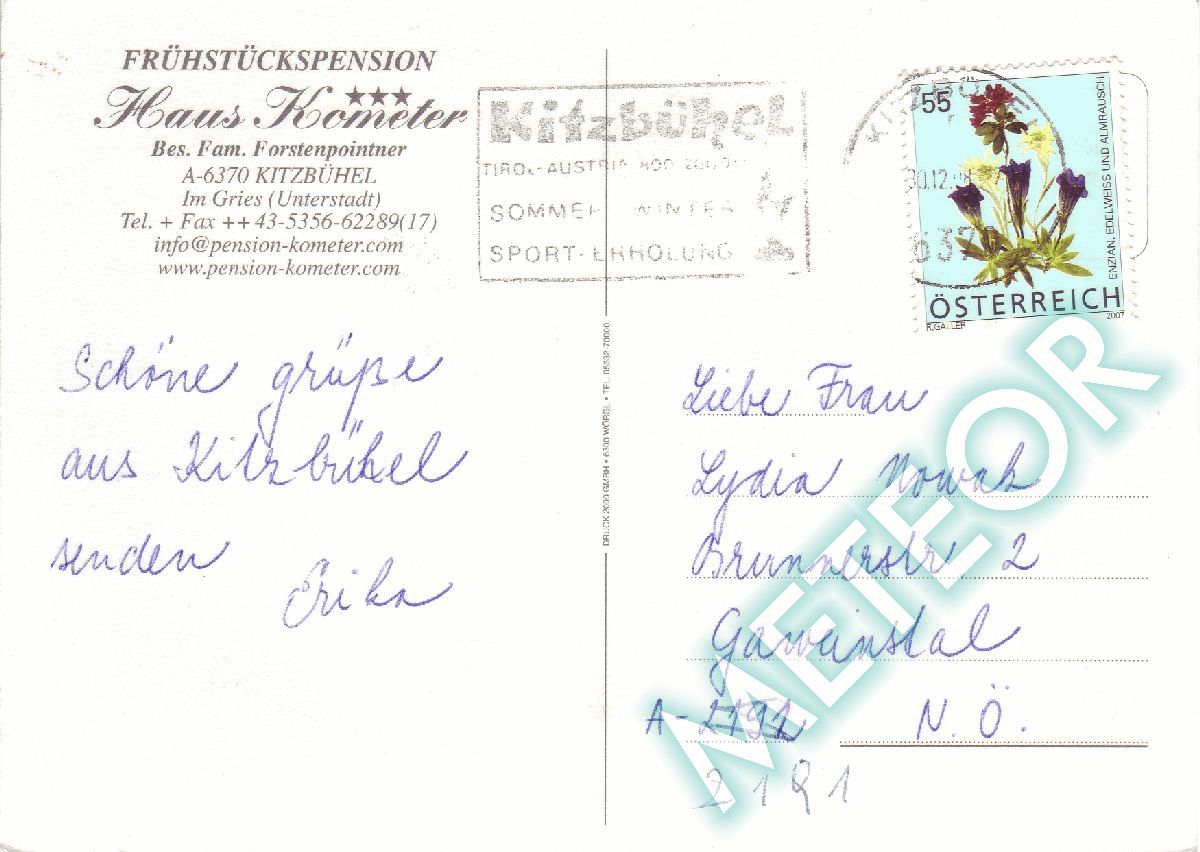 FRÜHSTÜCKSPENSION
Haus Kometer
Bes. Fam. Forstenpointner
A-6370 KITZBÜHEL
Im Gries (Unterstadt)
Tel. + Fax ++ 43-5356-62289(17)
info@pension-kometer.com
www.pension-kometer.com
Kitzbühel
TIROL-AUSTRIA
SOMMER WINTER
SPORT-ERHOLUNG
30.12.08
55
ENZIAN, EDELWEISS UND ALMRAUSCH
ÖSTERREICH
R.GALLER 2007
DRUCK 2000 GMBH • 6300 WÖRGL • TEL. 05332-70000
Schöne grüße
aus Kitzbühel
senden
Erika
Liebe Frau
Lydia Nowak
Brunnerstr 2
Gaweinstal
A- N.Ö.
2191
METEOR